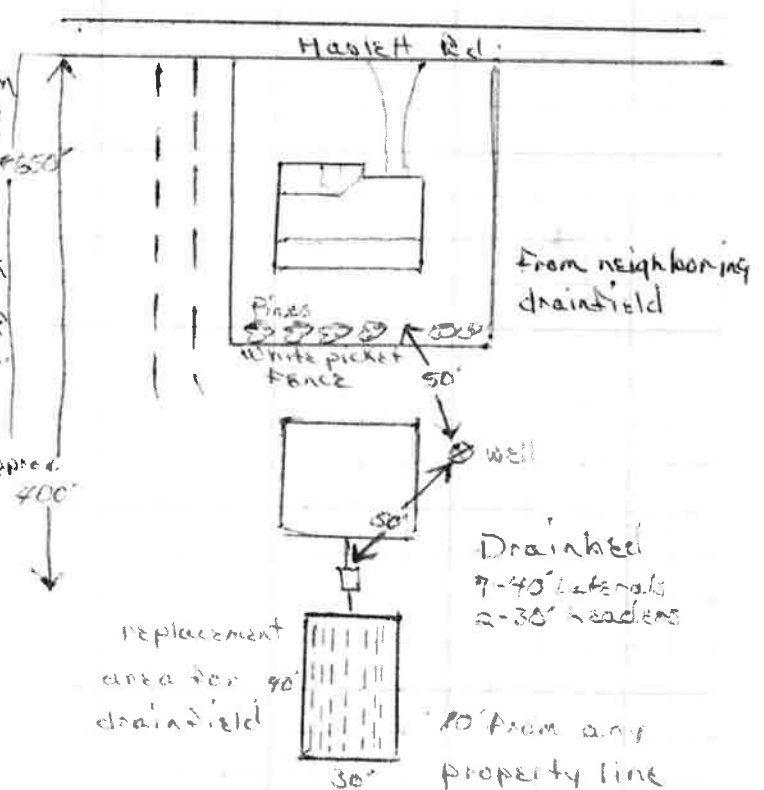 Haslett Rd.
650'
From neighboring
drainfield
Pines
White picket
Fence
50'
well
Approx.
400'
50'
Drainbed
7-40' Laterals
2-30' headers
replacement
area for 40'
drainfield
10' from any
30' property line